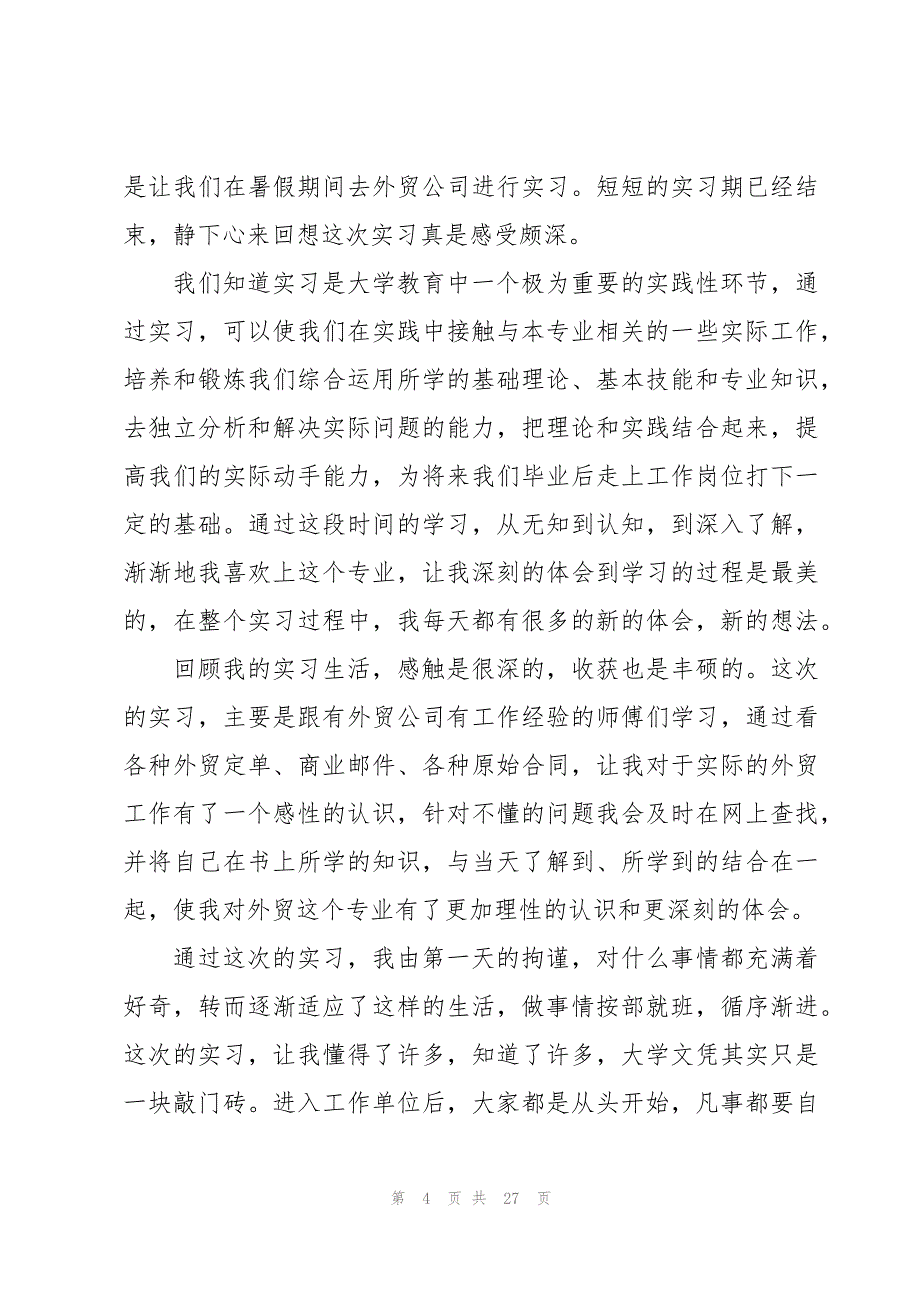 是让我们在暑假期间去外贸公司进行实习。短短的实习期已经结
束，静下心来回想这次实习真是感受颇深。
我们知道实习是大学教育中一个极为重要的实践性环节，通
过实习，可以使我们在实践中接触与本专业相关的一些实际工作，
培养和锻炼我们综合运用所学的基础理论、基本技能和专业知识，
去独立分析和解决实际问题的能力，把理论和实践结合起来，提
高我们的实际动手能力，为将来我们毕业后走上工作岗位打下一
定的基础。通过这段时间的学习，从无知到认知，到深入了解，
渐渐地我喜欢上这个专业，让我深刻的体会到学习的过程是最美
的，在整个实习过程中，我每天都有很多的新的体会，新的想法。
回顾我的实习生活，感触是很深的，收获也是丰硕的。这次
的实习，主要是跟有外贸公司有工作经验的师傅们学习，通过看
各种外贸定单、商业邮件、各种原始合同，让我对于实际的外贸
工作有了一个感性的认识，针对不懂的问题我会及时在网上查找，
并将自己在书上所学的知识，与当天了解到、所学到的结合在一
起，使我对外贸这个专业有了更加理性的认识和更深刻的体会。
通过这次的实习，我由第一天的拘谨，对什么事情都充满着
好奇，转而逐渐适应了这样的生活，做事情按部就班，循序渐进。
这次的实习，让我懂得了许多，知道了许多，大学文凭其实只是
一块敲门砖。进入工作单位后，大家都是从头开始，凡事都要自
第 4 页 共 27 页